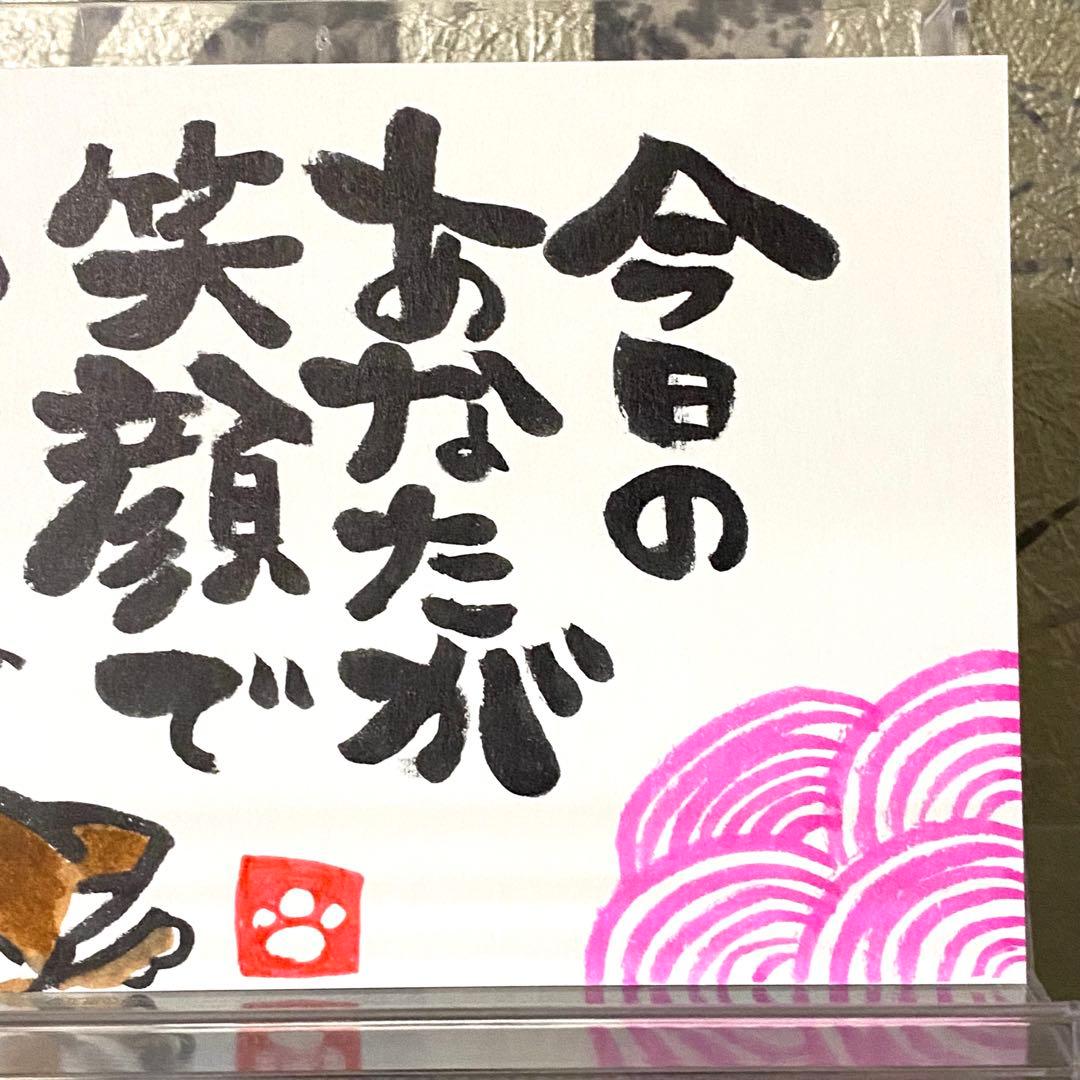 今日の
あなたが
笑顔で